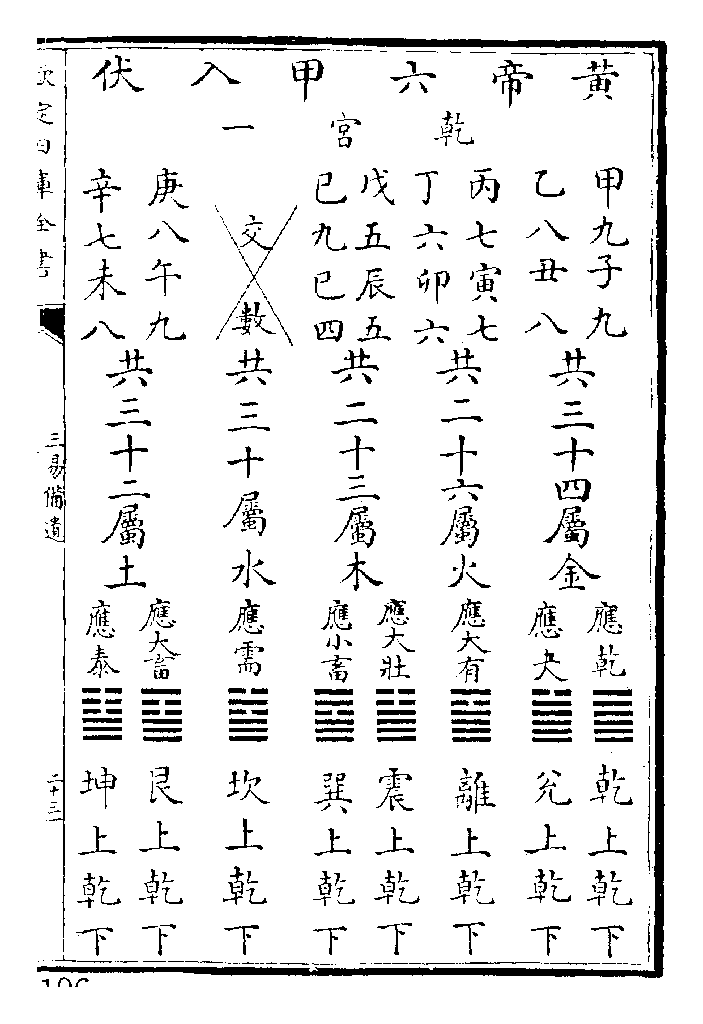 黃帝六甲入伏
乾宮一
甲九子九
乙八丑八
共三十四屬金
應乾
應夬
乾上乾下
兌上乾下
丙七寅七
丁六卯六
共二十六屬火
應大有
離上乾下
戊五辰五
巳九巳四
共二十三屬木
應大壯
應小畜
震上乾下
巽上乾下
交數
共三十屬水
應需
坎上乾下
庚八午九
辛七未八
共三十二屬土
應大畜
應泰
艮上乾下
坤上乾下
欽定四庫全書
三易備遺
二十三